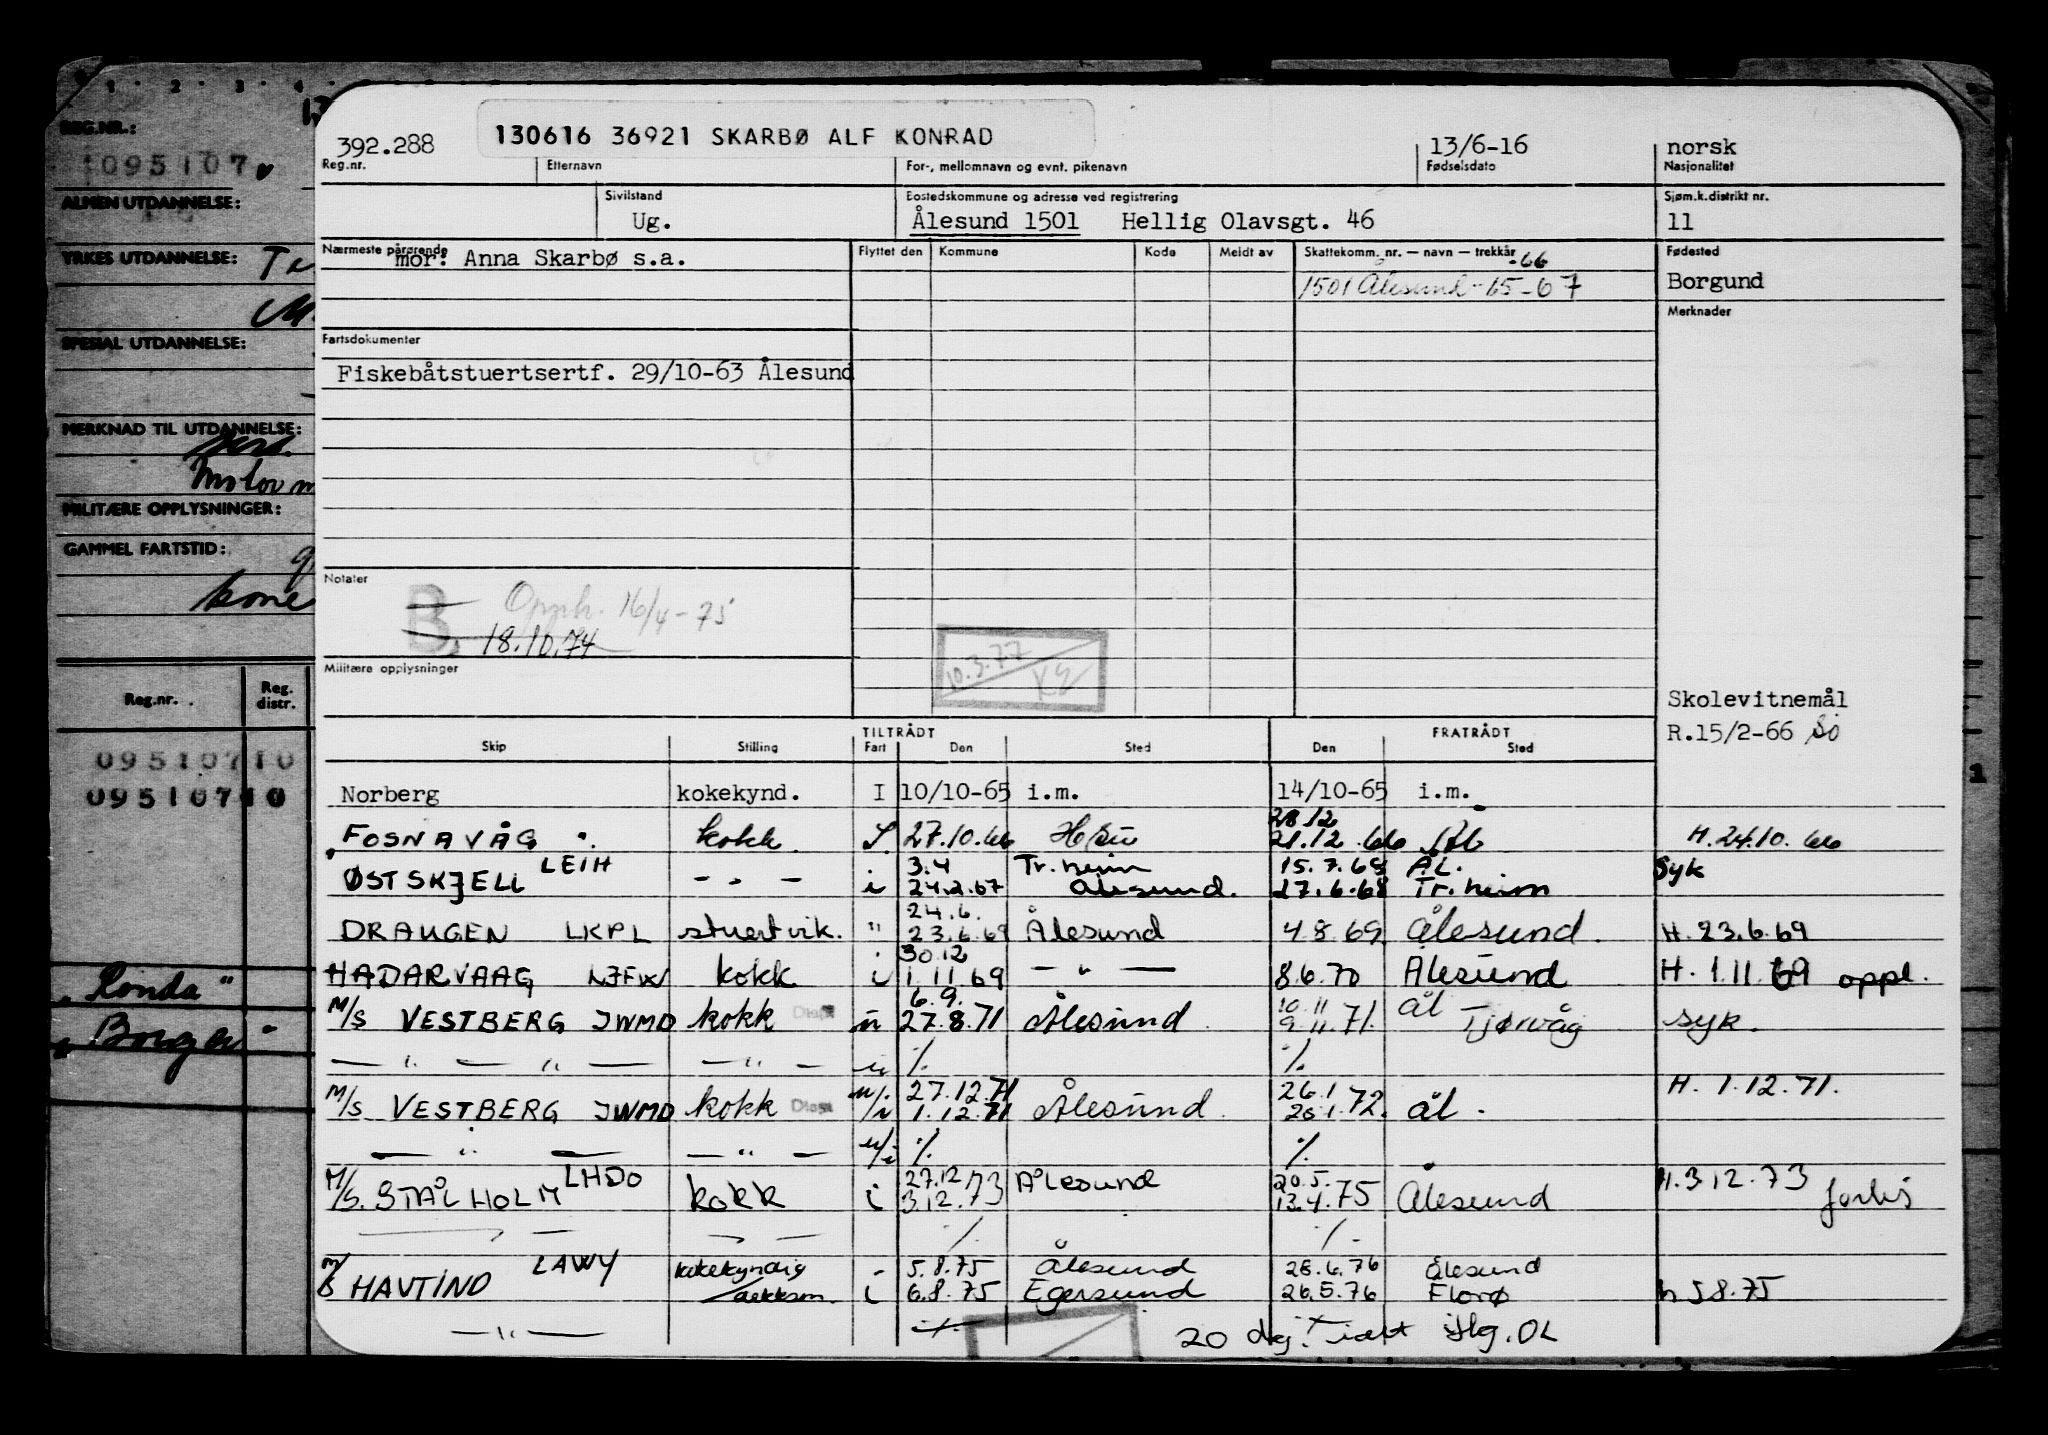 1 · 2 · 3 · 4 ·
REG.NR.:
1095107
ALMEN UTDANNELSE:
YRKES UTDANNELSE:
SPESIAL UTDANNELSE:
MERKNAD TIL UTDANNELSE:
Motor m
MILITÆRE OPPLYSNINGER:
GAMMEL FARTSTID:
kone
Reg.nr. Reg. distr.
09510710
09510710
"Ronda"
Borger
392.288 130616 36921 SKARBØ ALF KONRAD 13/6-16 norsk
Reg.nr. Etternavn For-, mellomnavn og evnt. pikenavn Fødselsdato Nasjonalitet
Sivilstand Bostedskommune og adresse ved registrering Sjøm.k.distrikt nr.
Ug. Ålesund 1501 Hellig Olavsgt. 46 11
Nærmeste pårørende Flyttet den Kommune Kode Meldt av Skattekomm. nr. — navn — trekkår Fødested
mor: Anna Skarbø s.a. -66
1501 Ålesund -65-67 Borgund
Merknader
Fartsdokumenter
Fiskebåtstuertsertf. 29/10-63 Ålesund
Notater
B. Opph. 16/4-75
18.10.74
10.3.77
Militære opplysninger
Skolevitnemål
R.15/2-66
TILTRÅDT FRATRÅDT
Skip Stilling Fart Den Sted Den Sted
Norberg kokekynd. I 10/10-65 i.m. 14/10-65 i.m.
28.12
FOSNAVÅG kokk 27.10.66 21.12.66 Ål H. 24.10.66
LEIH 3.4 Tr.heim 15.7.68 ÅL. Syk
ØSTSKJELL — " — i 24.2.67 Ålesund. 27.6.68 Tr.heim
24.6.
DRAUGEN LKPL stuertvik. " 23.6.69 Ålesund 4.8.69 Ålesund. H. 23.6.69
30.12
HADARVAAG kokk i 1.11.69 — " — 8.6.70 Ålesund H. 1.11.69 oppl.
6.9. 10.11 Ål
M/S VESTBERG JWMD kokk 27.8.71 Ålesund 9.11.71. Tjørvåg syk.
— " — " — — " — ./. ./.
27.12.71 26.1 H. 1.12.71.
M/S VESTBERG JWMD kokk 1.12.71 Ålesund 72. ål.
— " — — " — u/i ./. ./.
LHDO 27.12 Ålesund 20.5. H.3.12.73
M/S. STÅLHOLM kokk i 3.12.73 13.4.75 Ålesund
./. ./.
LAWY kokekyndig 5.8.75 Ålesund 28.6.76 Ålesund
M/S HAVTIND i 6.8.75 Egersund 26.5.76 Florø h 5.8.75
— " — ./. 20 dg.